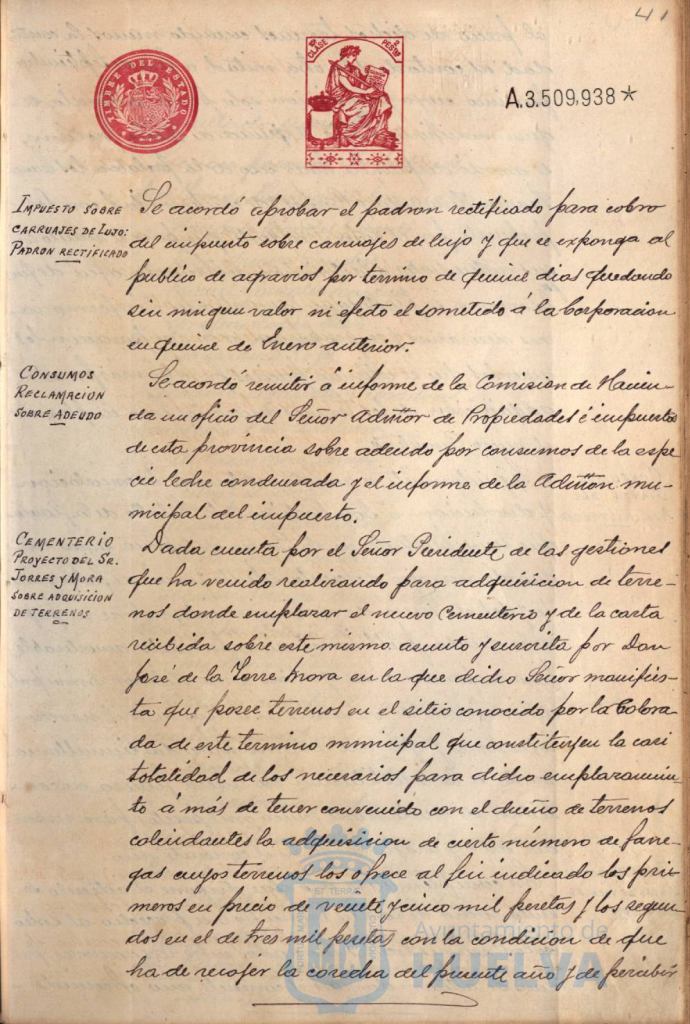 41
TIMBRE DEL ESTADO
CLASE
PESETA
A.3.509,938*
IMPUESTO SOBRE
CARRUAJES DE LUJO:
PADRON RECTIFICADO
Se acordó aprobar el padron rectificado para cobro
del impuesto sobre carruajes de lujo y que se exponga al
publico de agravios por termino de quince dias quedando
sin ningun valor ni efecto el sometido á la Corporacion
en quince de Enero anterior.
CONSUMOS
RECLAMACION
SOBRE ADEUDO
Se acordó remitir á informe de la Comision de Hacien-
da un oficio del Señor Admōr de Propiedades é impuestos
de esta provincia sobre adeudo por consumos de la espe
cie leche condensada y el informe de la Admōn mu-
nicipal del impuesto.
CEMENTERIO
PROYECTO DEL SR.
TORRES Y MORA
SOBRE ADQUISICION
DE TERRENOS
Dada cuenta por el Señor Presidente de las gestiones
que ha venido realizando para adquisicion de terre-
nos donde emplazar el nuevo Cementerio y de la carta
recibida sobre este mismo asunto y suscrita por Don
José de la Torre Mora en la que dicho Señor manifies-
ta que posee terrenos en el sitio conocido por la Colora-
da de este termino municipal que constituyen la casi
totalidad de los necesarios para dicho emplazamien-
to á más de tener convenido con el dueño de terrenos
colindantes la adquisicion de cierto número de fane-
gas cuyos terrenos los ofrece al fin indicado los pri-
meros en precio de veinte y cinco mil pesetas y los segun-
dos en el de tres mil pesetas con la condicion de que
ha de recojer la cosecha del presente año y de percibir
Ayuntamiento de
HUELVA